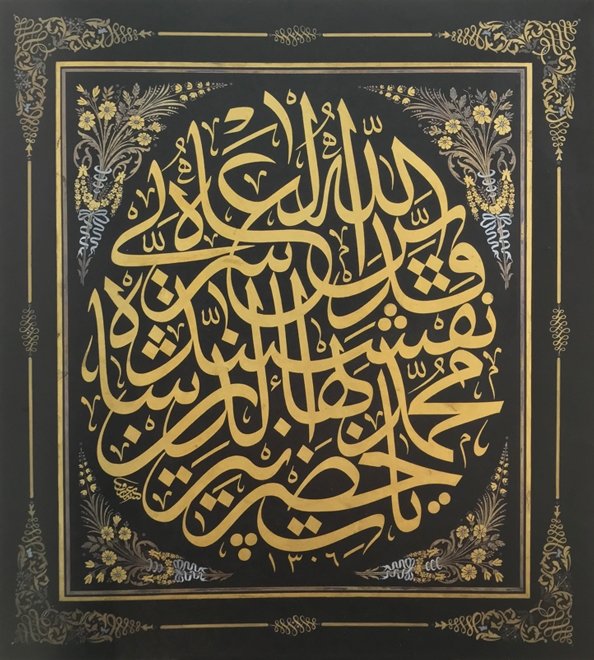 يا حضرت پير
محمد بهاء الدين شاه
نقشبند
قدس الله سره العالي
١٣٠٦